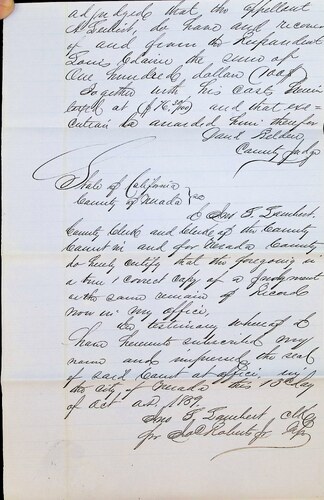 adjudged that the appellant
do have and recover
of and from the Respondent
Louis Claire the sum of
One hundred dollars (100$)
Together with his costs herein
taxed at ($76
and that exe-
cution be awarded him therefor
County Judge
State of California
County of Nevada } ss
I Jno T. Lambert.
County Clerk and Clerk of the County
Court in and for Nevada County
do hereby certify that the foregoing is
a true & correct copy of a Judgment
as the same remain of Record
now in my office.
In testimony whereof I
have hereunto subscribed my
name and impressed the seal
of said Court at office in
the City of Nevada this 18 day
of Oct A.D.
Jno T. Lambert Clk
for Roberts Jr Dpy